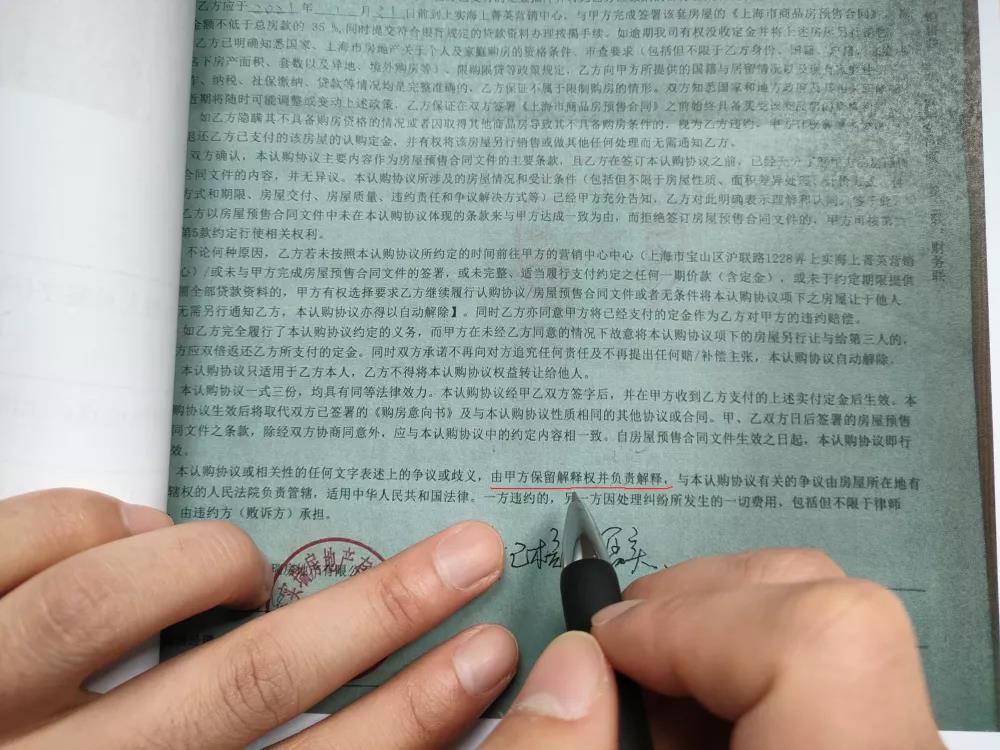 乙方应于2021年 月21日前到上实海上菁英营销中心，与甲方完成签署该套房屋的《上海市商品房预售合同》，
金额不低于总房款的 35 %，同时提交符合银行规定的贷款资料办理按揭手续。如逾期我司有权没收定金并将上述房屋另行
乙方已明确知悉国家、上海市房地产关于个人及家庭购房的资格条件、审查要求（包括但不限于乙方身份、国籍、户籍、
名下房产面积、套数以及异地、境外购房等）、限购限贷等政策规定，乙方向甲方所提供的国籍与居留情况以及
、纳税、社保缴纳、贷款等情况均是完整准确的，乙方保证不属于限制购房的情形。双方知悉国家和地方政府
近期将随时可能调整或变动上述政策，乙方保证在双方签署《上海市商品房预售合同》之前始终具备
如乙方隐瞒其不具备购房资格的情况或者因取得其他商品房导致其不具备购房条件的，视为乙方违约，甲方
退还乙方已支付的该房屋的认购定金，并有权将该房屋另行销售或做其他任何处理而无需通知乙方。
双方确认，本认购协议主要内容作为房屋预售合同文件的主要条款，且乙方在签订本认购协议之前，已经
合同文件的内容，并无异议。本认购协议所涉及的房屋情况和受让条件（包括但不限于房屋性质、面积差异处理、
方式和期限、房屋交付、房屋质量、违约责任和争议解决方式等）已经甲方充分告知，乙方对此明确表示理解和认同。
乙方以房屋预售合同文件中未在本认购协议体现的条款来与甲方达成一致为由，而拒绝签订房屋预售合同文件的，甲方可按第
第5款约定行使相关权利。
不论何种原因，乙方若未按照本认购协议所约定的时间前往甲方的营销中心中心（上海市宝山区沪联路1228弄上实海上菁英营销
心）/或未与甲方完成房屋预售合同文件的签署，或未完整、适当履行支付约定之任何一期价款（含定金），或未于约定期限提供
需全部贷款资料的，甲方有权选择要求乙方继续履行认购协议/房屋预售合同文件或者无条件将本认购协议项下之房屋让于他人
无需另行通知乙方，本认购协议亦得以自动解除】。同时乙方亦同意甲方将已经支付的定金作为乙方对甲方的违约赔偿。
如乙方完全履行了本认购协议约定的义务，而甲方在未经乙方同意的情况下故意将本认购协议项下的房屋另行让与给第三人的，
方应双倍返还乙方所支付的定金。同时双方承诺不再向对方追究任何责任及不再提出任何赔/补偿主张，本认购协议自动解除。
本认购协议只适用于乙方本人，乙方不得将本认购协议权益转让给他人。
本认购协议一式三份，均具有同等法律效力。本认购协议经甲乙双方签字后，并在甲方收到乙方支付的上述实付定金后生效。本
购协议生效后将取代双方已签署的《购房意向书》及与本认购协议性质相同的其他协议或合同。甲、乙双方日后签署的房屋预售
同文件之条款，除经双方协商同意外，应与本认购协议中的约定内容相一致。自房屋预售合同文件生效之日起，本认购协议即行
效。
本认购协议或相关性的任何文字表述上的争议或歧义，由甲方保留解释权并负责解释，与本认购协议有关的争议由房屋所在地有
辖权的人民法院负责管辖，适用中华人民共和国法律。一方违约的，另一方因处理纠纷所发生的一切费用，包括但不限于律师
由违约方（败诉方）承担。
联：财务联
房地产有限公
瑞房地产